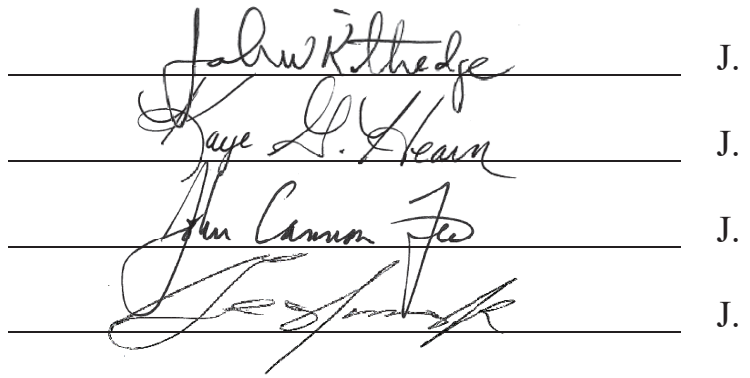 John W. Kittredge J.
Kaye G. Hearn J.
John Cannon Few J.
J.